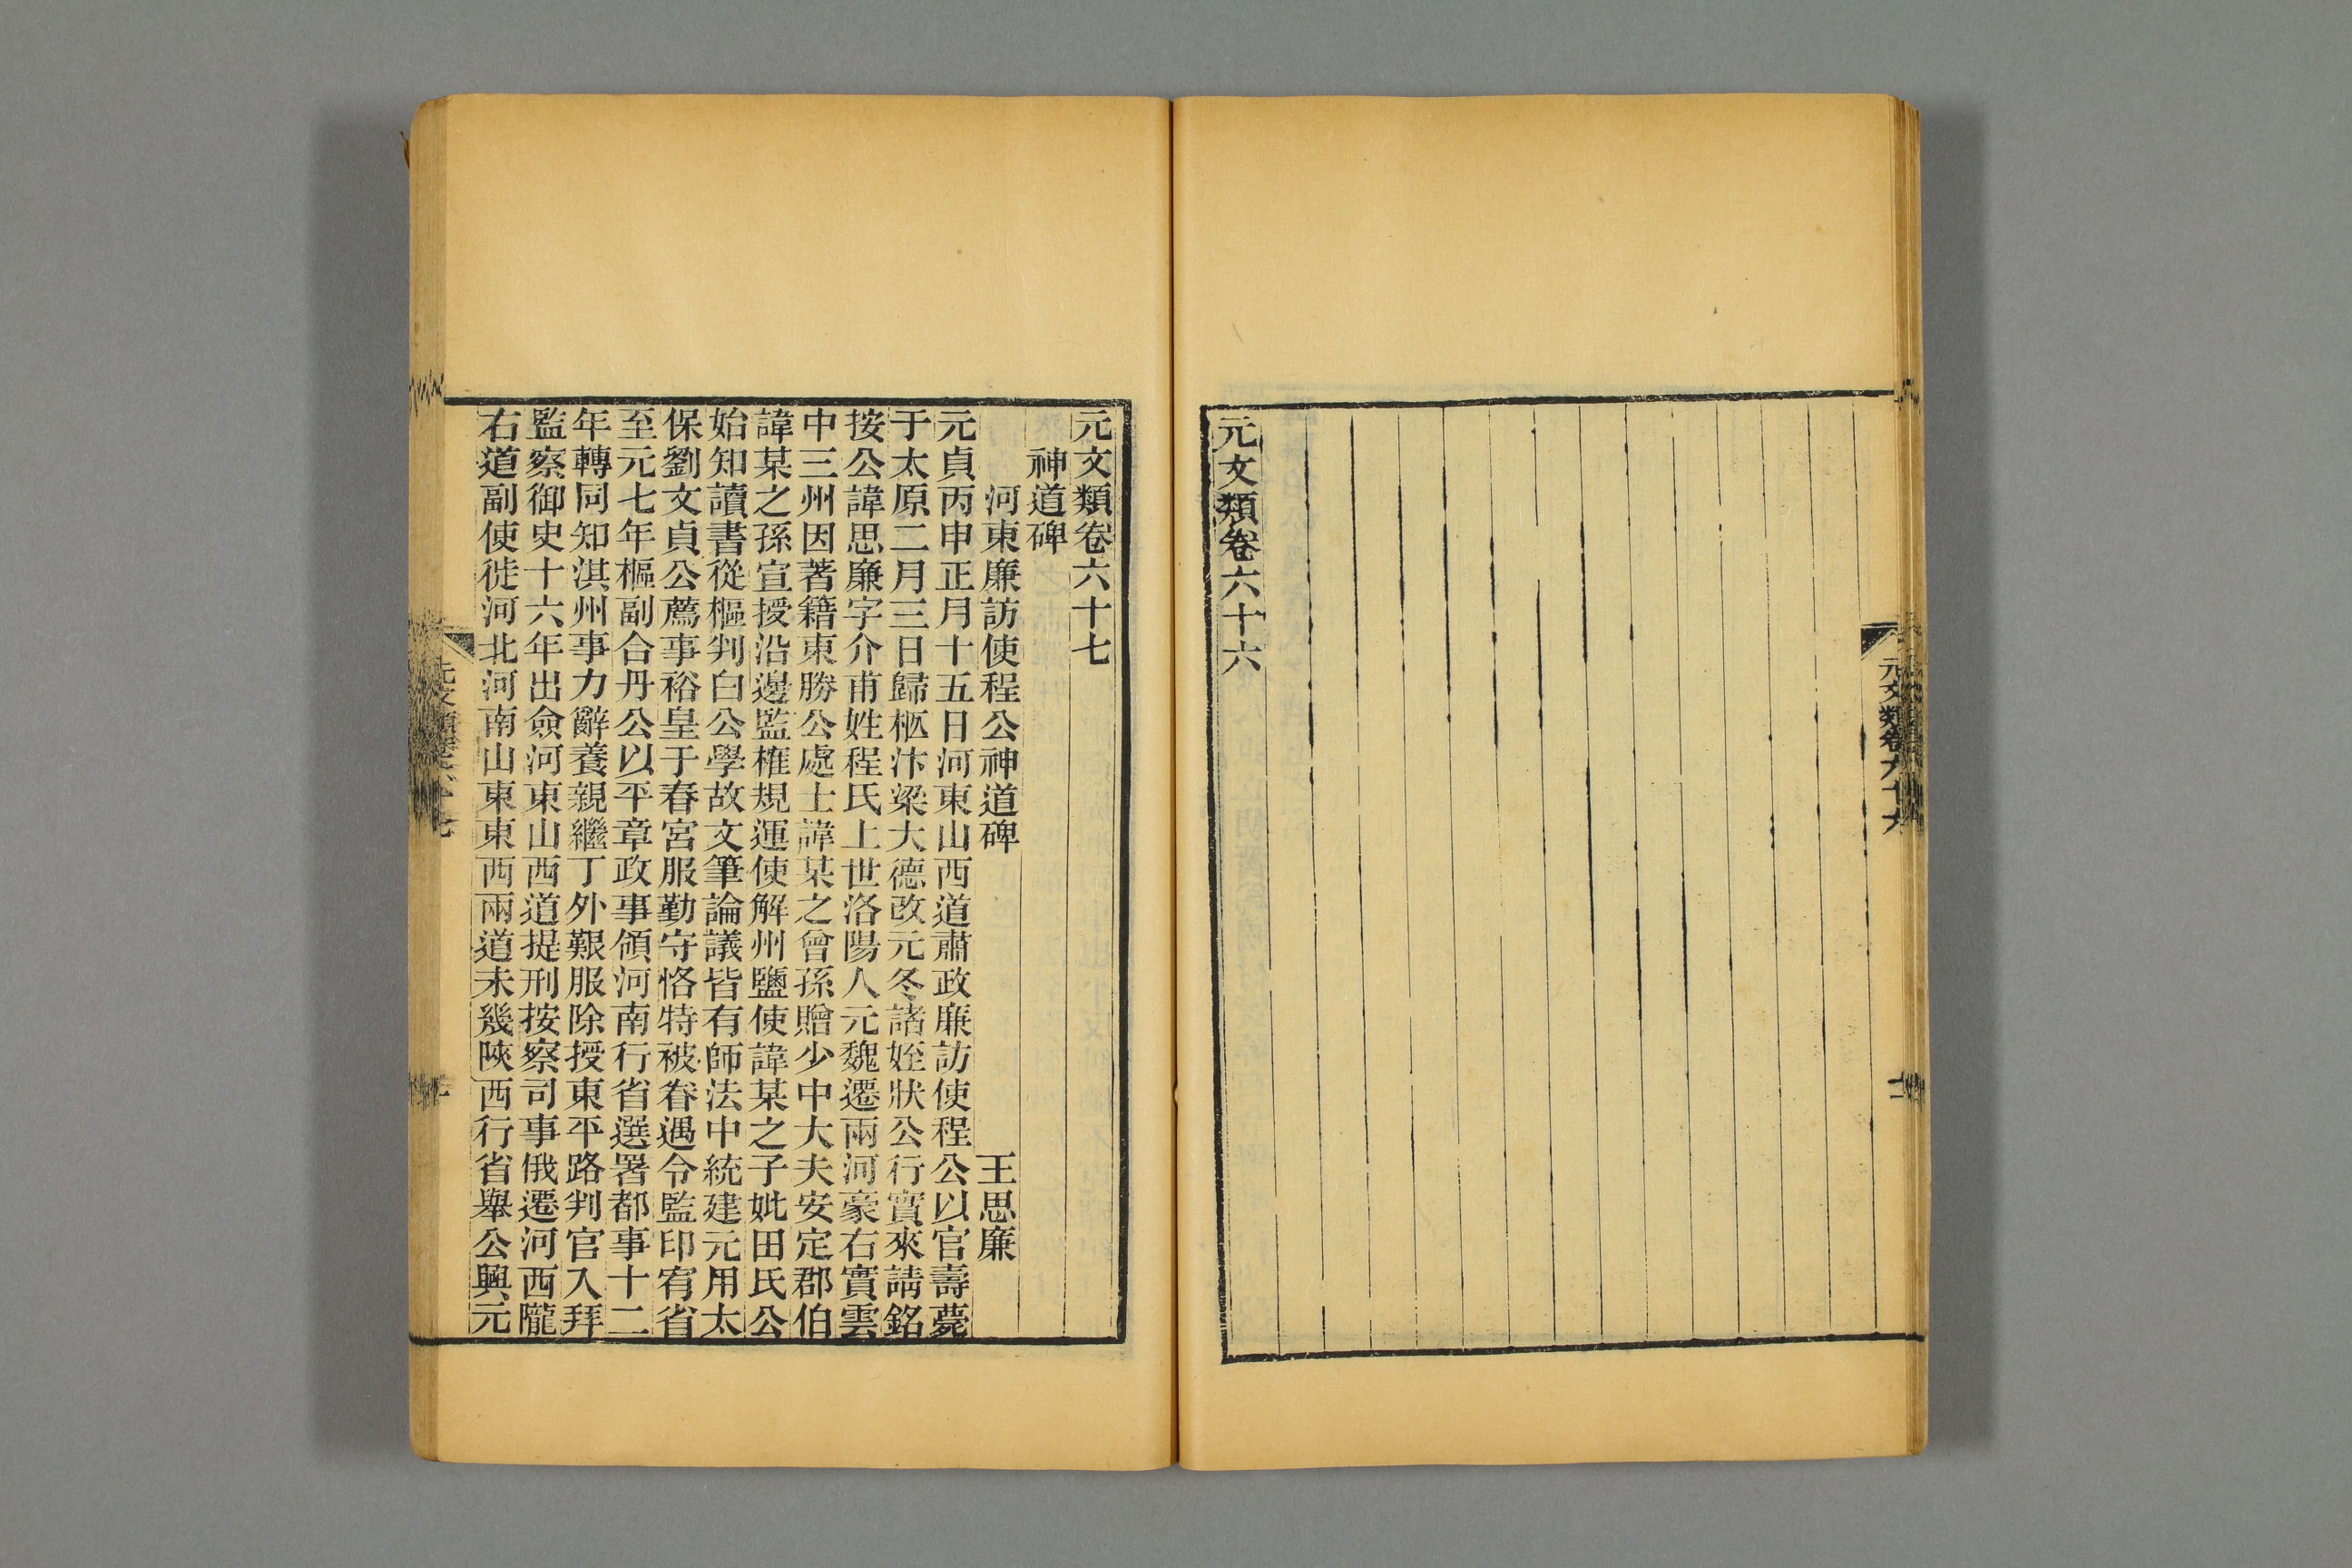 元文類卷六十六
元文類卷六十六
元文類卷六十七
神道碑
河東廉訪使程公神道碑 王思廉
元貞丙申正月十五日河東山西道肅政廉訪使程公以官壽薨
于太原二月三日歸柩汴梁大德改元冬諸姪狀公行實來請銘
按公諱思廉字介甫姓程氏上世洛陽人元魏遷兩河豪右實雲
中三州因著籍東勝公處士諱某之曾孫贈少中大夫安定郡伯
諱某之孫宣授沿邊監榷規運使解州鹽使諱某之子妣田氏公
始知讀書從樞判白公學故文筆論議皆有師法中統建元用太
保劉文貞公薦事裕皇于春宮服勤守恪特被眷遇令監印宥省
至元七年樞副合丹公以平章政事領河南行省選署都事十二
年轉同知淇州事力辭養親繼丁外艱服除授東平路判官入拜
監察御史十六年出僉河東山西道提刑按察司事俄遷河西隴
右道副使徙河北河南山東東西兩道未幾陝西行省舉公興元
元文類卷六十七